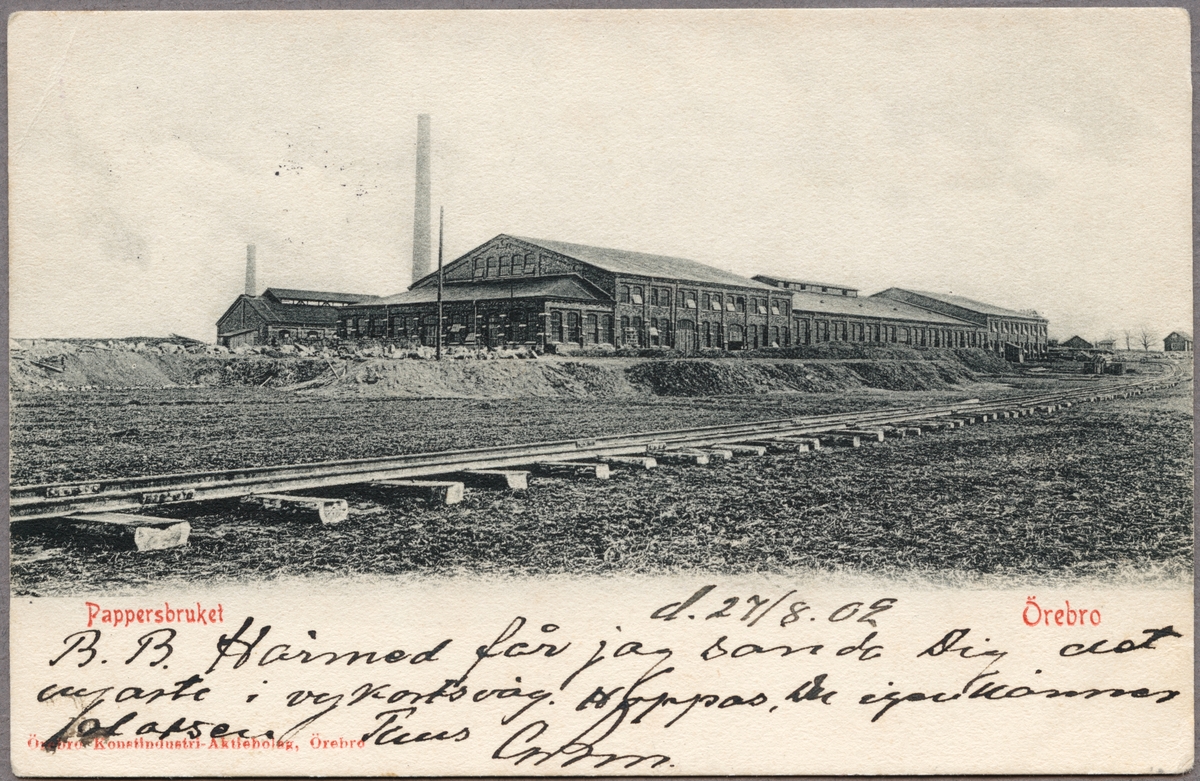 Pappersbruket
d. 27/8. 02
Örebro
B. B. Härmed får jag sända Dig det
nyaste i vykortsväg. Hoppas, Du igenkänner
platsen. Tuus
Örebro Konstindustri-Aktiebolag, Örebro